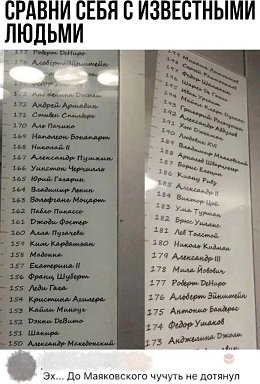 СРАВНИ СЕБЯ С ИЗВЕСТНЫМИ
ЛЮДЬМИ
177 Роберт ДеНиро
176 Альберт Эйнштейн
174 Федор Ушаков
173 Анджелина Джоли
172 Андрей Аршавин
171 Стивен Спилберг
170 Аль Пачино
169 Наполеон Бонапарт
168 Николай II
167 Александр Пушкин
166 Уинстон Черчилль
165 Юрий Гагарин
164 Владимир Ленин
163 Вольфганг Моцарт
162 Пабло Пикассо
161 Джоди Фостер
160 Алла Пугачева
159 Ким Кардашьян
158 Мадонна
157 Екатерина II
156 Франц Шуберт
155 Леди Гага
154 Кристина Агилера
153 Кайли Миноуг
152 Дэнни ДеВито
151 Шакира
150 Александр Македонский
198
197
196
195
194
193 Григорий Распутин
192 Александр Абдулов
191 Ким
190 Людовик XVI
189 Владимир Маяковский
188 Арнольд Шварценеггер
187 Борис Ельцин
186 Киану Ривз
185 Александр II
184 Виктор Цой
183 Ума Турман
182 Брюс Уиллис
181 Лев Толстой
180 Николь Кидман
179 Александр III
178 Мила Йовович
177 Роберт ДеНиро
176 Альберт Эйнштейн
175 Антонио Бандерас
174 Федор Ушаков
173 Анджелина Джоли
Эх... До Маяковского чучуть не дотянул